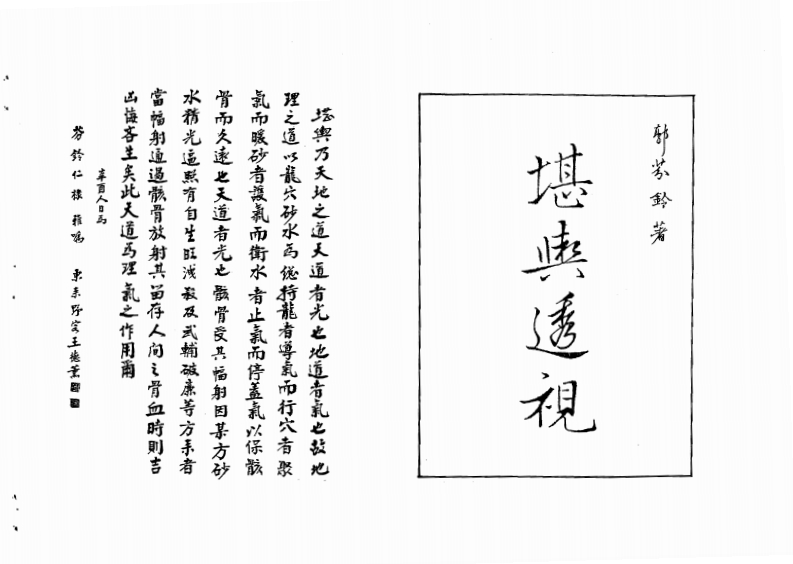 郭芬鈴著
堪輿透視
堪輿乃天地之道天道者光也地道者氣也故地
理之道以龍穴砂水為總持龍者導氣而行穴者聚
氣而暖砂者護氣而衛水者止氣而停蓋氣以保骸
骨而久遠也天道者光也骸骨受其幅射因某方砂
水積光逼照有自生旺洩殺及武輔破廉等方來者
當幅射通過骸骨放射其留存人间之骨血時則吉
凶悔吝生矣此天道為理氣之作用爾
辛酉人日為
芬鈴仁棣雅囑 東來野客王德薰